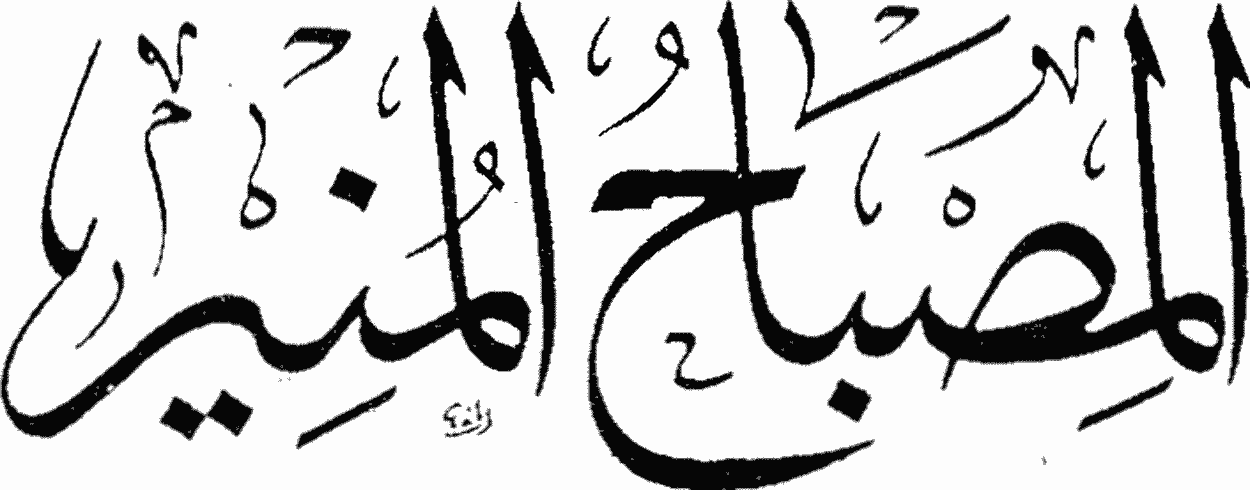 المِصْبَاحُ المُنِيرُ